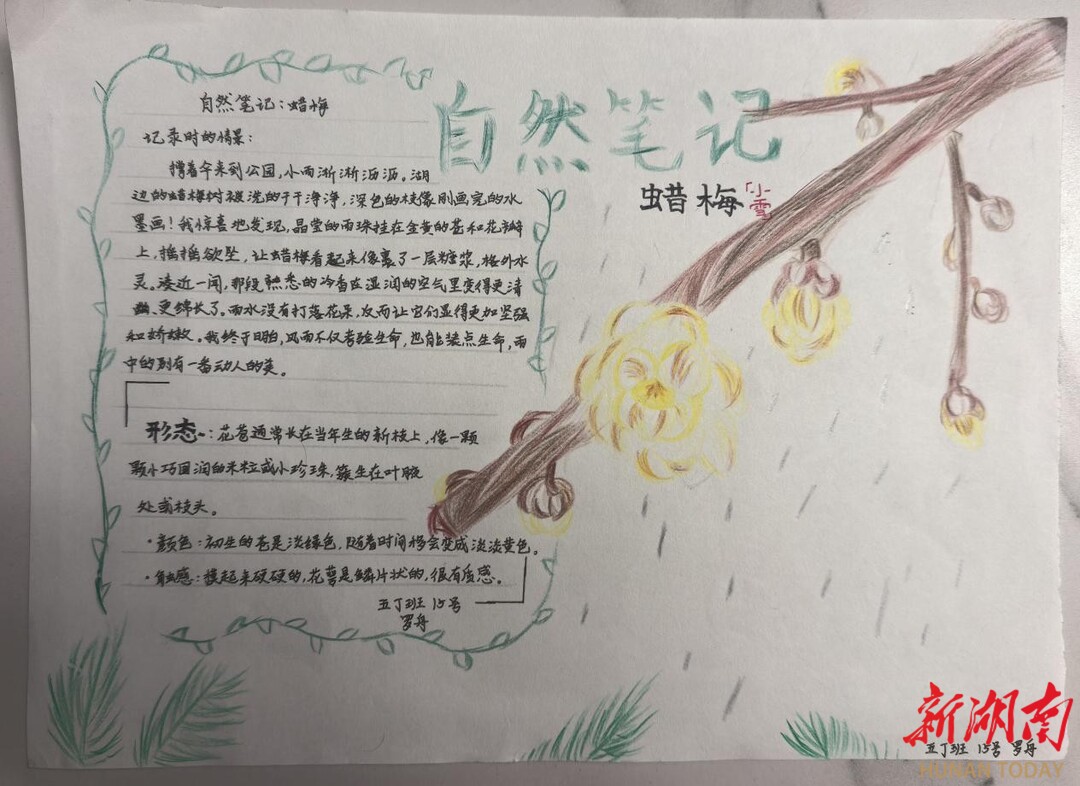 自然笔记
蜡梅「小雪
自然笔记：蜡梅
记录时的情景：
撑着伞来到公园，小雨淅淅沥沥。湖
边的蜡梅树被洗的干干净净，深色的枝像刚画完的水
墨画！我惊喜地发现，晶莹的雨珠挂在金黄的苞和花瓣
上，摇摇欲坠，让蜡梅看起来像裹了一层糖浆，格外水
灵。凑近一闻，那段熟悉的冷香在湿润的空气里变得更清
幽、更绵长了。雨水没有打落花朵，反而让它们显得更加坚强
和娇嫩。我终于明白，风雨不仅考验生命，也能装点生命，雨
中的别有一番动人的美。
形态：花苞通常长在当年生的新枝上，像一颗
颗小巧圆润的米粒或小珍珠，簇生在叶腋
处或枝头。
·颜色：初生的苞是淡绿色，随着时间推移会变成淡淡黄色。
·触感：摸起来硬硬的，花萼是鳞片状的，很有质感。
五丁班 15号
罗舟
新湖南
五丁班 15号 罗舟
HUNAN TODAY